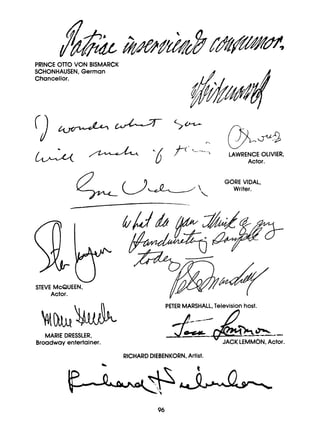 Patriae inserviendo consumor.
PRINCE OTTO VON BISMARCK
SCHONHAUSEN, German
Chancellor.
I wonder what you
will make of this
LAWRENCE OLIVIER,
Actor.
Gore Vidal
GORE VIDAL,
Writer.
What do you think of my
Handwriting sample
today
Steve McQueen
Peter Marshall
STEVE McQUEEN,
Actor.
PETER MARSHALL, Television host.
Marie Dressler
Jack Lemmon
MARIE DRESSLER,
Broadway entertainer.
JACK LEMMON, Actor.
RICHARD DIEBENKORN, Artist.
Richard Diebenkorn
96